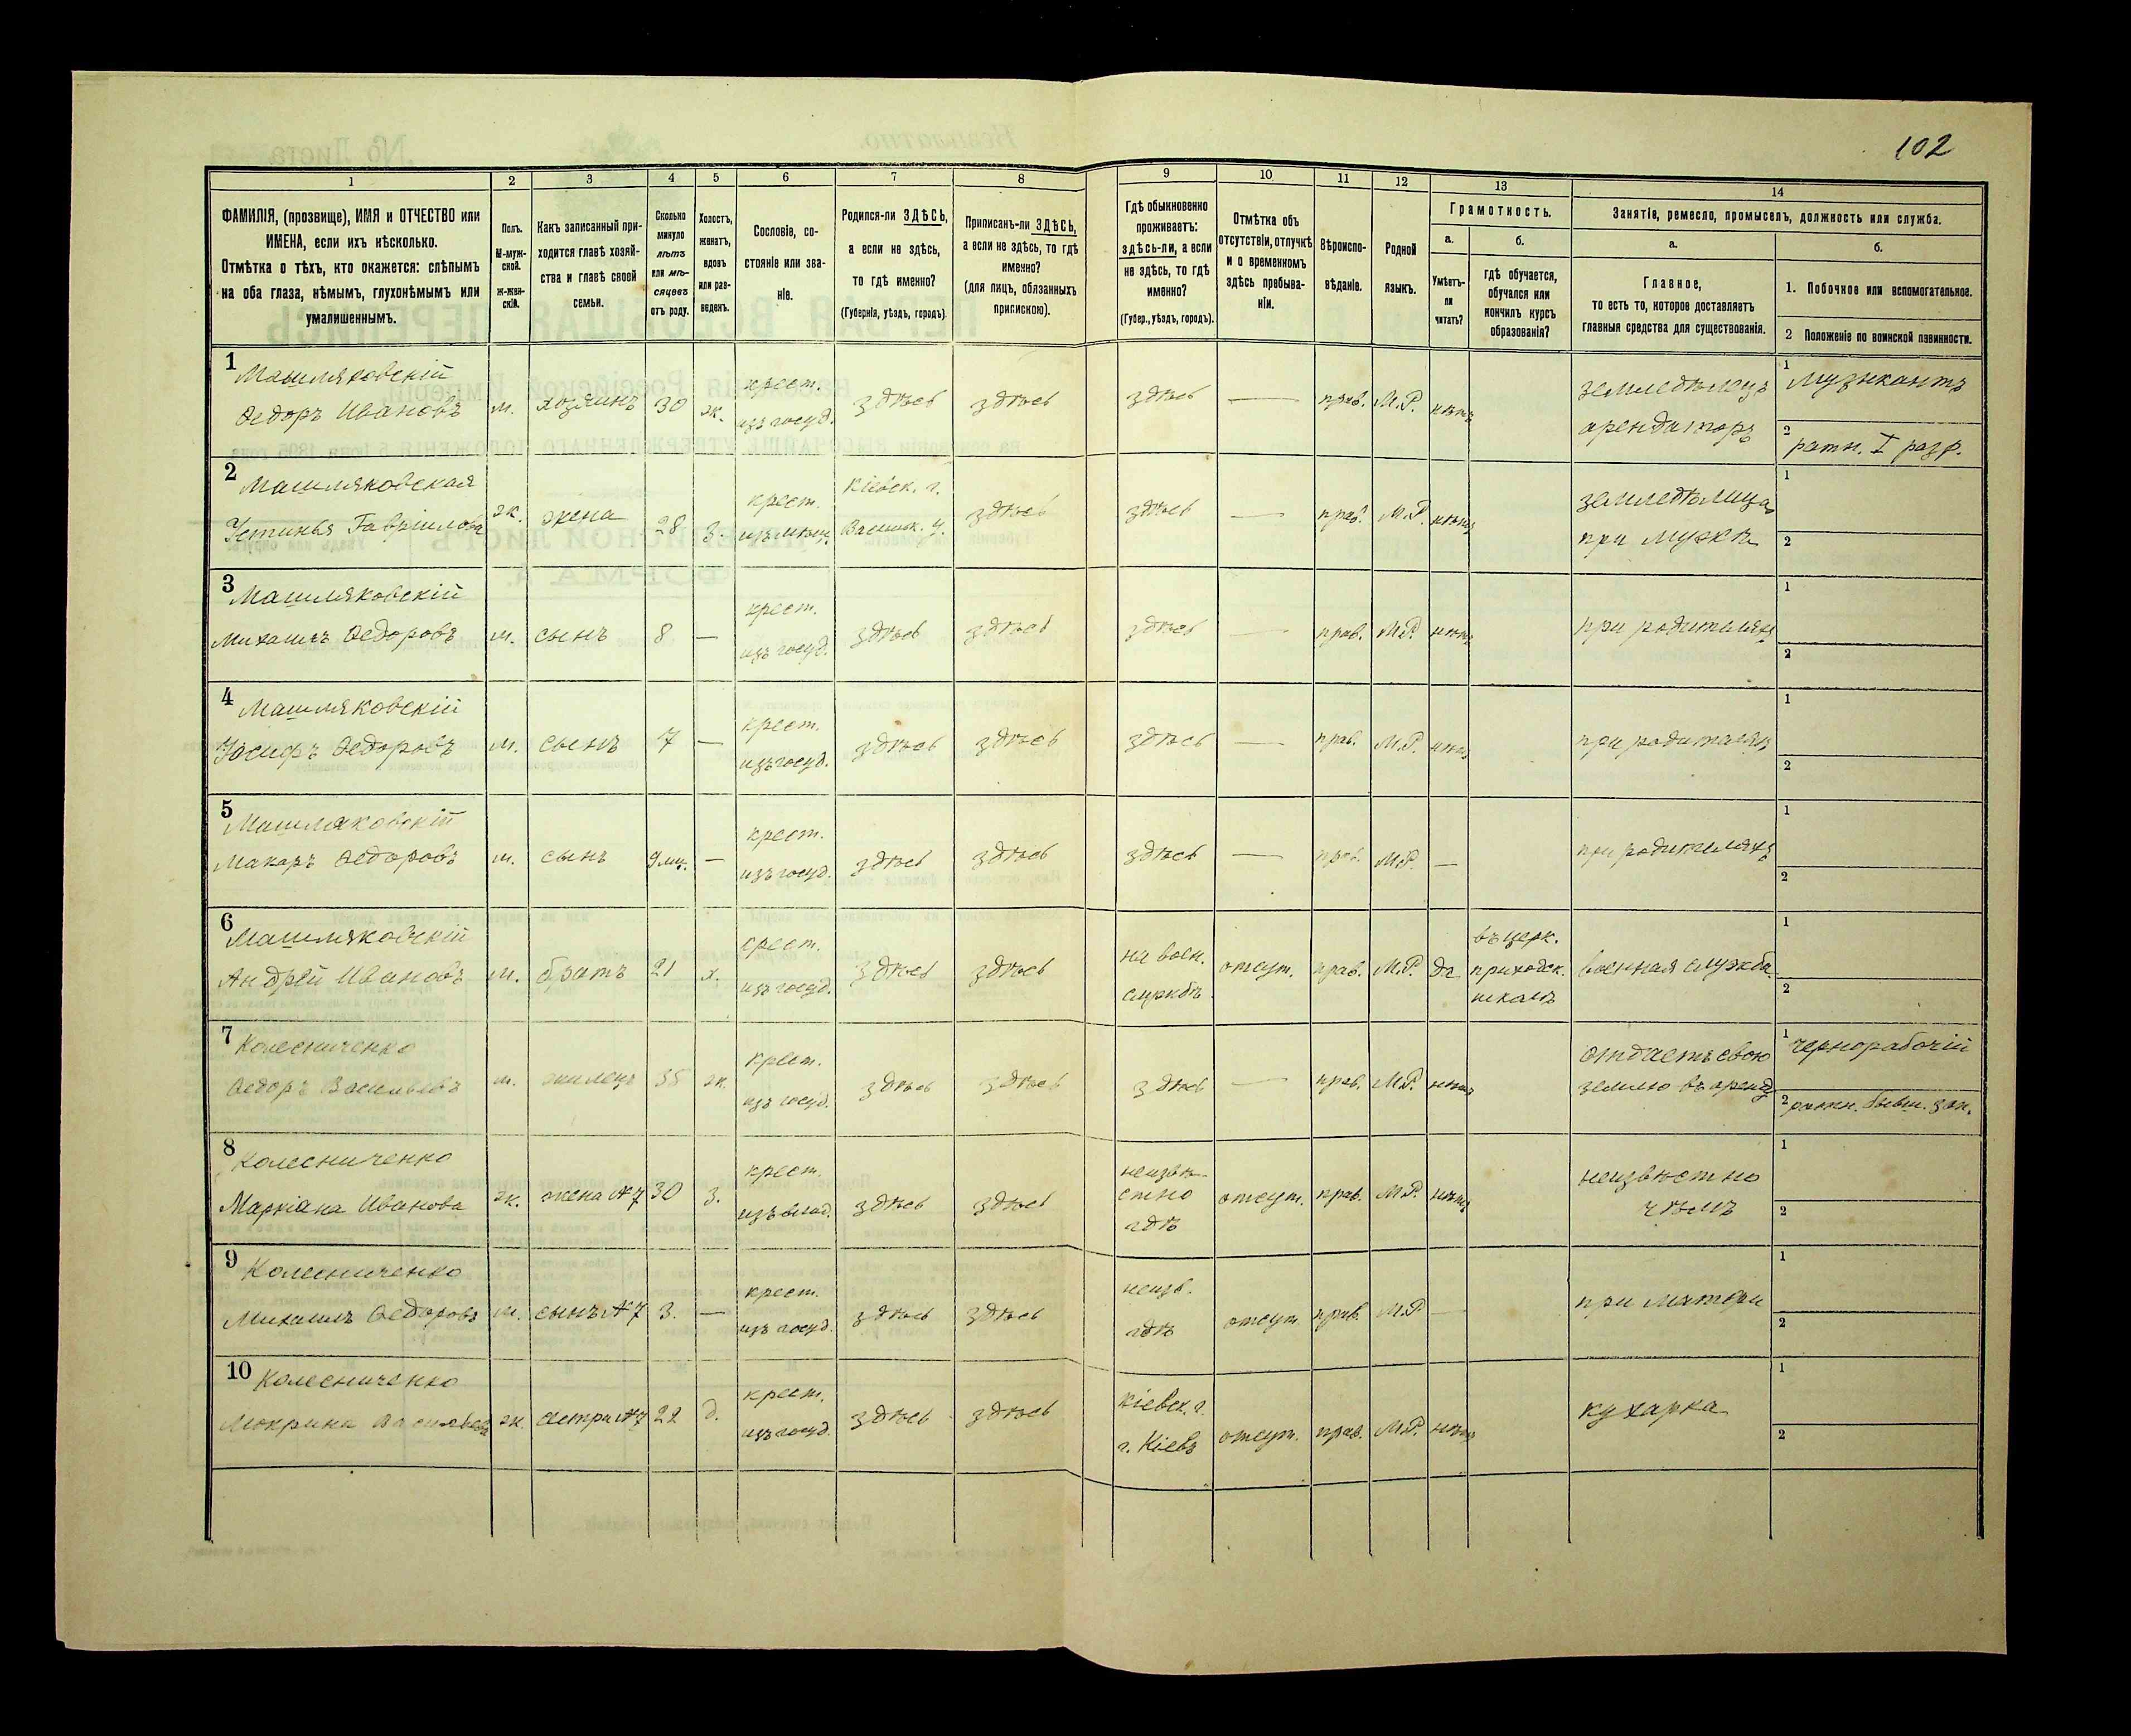 102
1
2
3
4
5
6
7
8
9
10
11
12
13
14
ФАМИЛІЯ, (прозвище), ИМЯ и ОТЧЕСТВО или
ИМЕНА, если ихъ нѣсколько.
Отмѣтка о тѣхъ, кто окажется: слѣпымъ
на оба глаза, нѣмымъ, глухонѣмымъ или
умалишеннымъ.
Полъ.
М-муж-
ской.
Ж-жен-
скій.
Какъ записанный при-
ходится главѣ хозяй-
ства и главѣ своей
семьи.
Сколько
минуло
лѣтъ
или мѣ-
сяцевъ
отъ роду.
Холостъ,
женатъ,
вдовъ
или раз-
веденъ.
Сословіе, со-
стояніе или зва-
ніе.
Родился-ли ЗДѢСЬ,
а если не здѣсь,
то гдѣ именно?
(Губернія, уѣздъ, городъ).
Приписанъ-ли ЗДѢСЬ,
а если не здѣсь, то гдѣ
именно?
(для лицъ, обязанныхъ
припискою).
Гдѣ обыкновенно
проживаетъ:
здѣсь-ли, а если
не здѣсь, то гдѣ
именно?
(Губер., уѣздъ, городъ).
Отмѣтка объ
отсутствіи, отлучкѣ
и о временномъ
здѣсь пребыва-
ніи.
Вѣроиспо-
вѣданіе.
Родной
языкъ.
Грамотность.
а.
Умѣетъ-
ли
читать?
б.
гдѣ обучается,
обучался или
кончилъ курсъ
образованія?
Занятіе, ремесло, промыселъ, должность или служба.
а.
Главное,
то есть то, которое доставляетъ
главныя средства для существованія.
б.
1. Побочное или вспомогательное.
2 Положеніе по воинской повинности.
1
Машляковскій
Федоръ Ивановъ
м.
хозяинъ
30
ж.
крест.
изъ госуд.
здѣсь
здѣсь
здѣсь
—
прав.
М.Р.
нѣтъ
земледѣлецъ
арендаторъ
1
музыкантъ
2
ратн. I разр.
2
Машляковская
Устинья Гавріилова
ж.
жена
28
з.
крест.
Кіевск. г.
Васильк. у.
здѣсь
здѣсь
—
прав.
М.Р.
нѣтъ
земледѣлица
при мужѣ
1
2
3
Машляковскій
Михаилъ Федоровъ
м.
сынъ
8
—
крест.
изъ госуд.
здѣсь
здѣсь
здѣсь
—
прав.
М.Р.
нѣтъ
при родителяхъ
1
2
4
Машляковскій
Іосифъ Федоровъ
м.
сынъ
7
—
крест.
изъ госуд.
здѣсь
здѣсь
здѣсь
—
прав.
М.Р.
нѣтъ
при родителяхъ
1
2
5
Машляковскій
Макаръ Федоровъ
м.
сынъ
9 мц.
—
крест.
изъ госуд.
здѣсь
здѣсь
здѣсь
—
прав.
М.Р.
—
при родителяхъ
1
2
6
Машляковскій
Андрей Ивановъ
м.
братъ
21
х.
крест.
изъ госуд.
здѣсь
здѣсь
на воен.
службѣ
отсут.
прав.
М.Р.
да
въ церк.
приходск.
школѣ
военная служба
1
2
7
Колесниченко
Федоръ Васильевъ
м.
жилецъ
35
ж.
крест.
изъ госуд.
здѣсь
здѣсь
здѣсь
—
прав.
М.Р.
нѣтъ
отдаетъ свою
землю въ аренду
1
чернорабочій
2
ратн. бывш. зап.
8
Колесниченко
Маркіана Иванова
ж.
жена №7
30
з.
крест.
здѣсь
здѣсь
неизвѣ-
стно
гдѣ
отсут.
прав.
М.Р.
нѣтъ
неизвѣстно
чѣмъ
1
2
9
Колесниченко
Михаилъ Федоровъ
м.
сынъ №7
3.
—
крест.
изъ госуд.
здѣсь
здѣсь
неизв.
гдѣ
отсут.
прав.
М.Р.
—
при матери
1
2
10
Колесниченко
Мокрина Васильева
ж.
сестра №7
22
д.
крест.
изъ госуд.
здѣсь
здѣсь
Кіевск. г.
г. Кіевъ
отсут.
прав.
М.Р.
нѣтъ
кухарка
1
2